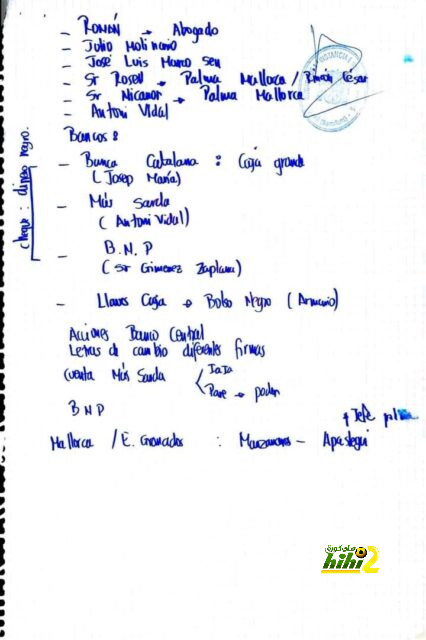 - ROMÁN → Abogado
- Julio Molinario
- José Luis Marco Seu
- Sr Rosell → Palma Mallorca / Román César
- Sr Nicanor → Palma Mallorca
- Antoni Vidal
Bancos:
cheque: dinero negro.
- Banca Catalana : Caja grande
(Josep María)
- Más Sarda
(Antoni Vidal)
- B.N.P
(Sr Gimenez Zaplana)
- Llaves Caja → Bolso Negro (Armario)
Acciones Banco Central
Letras de cambio diferentes firmas
Cuenta Más Sarda
Pare → poder
BNP
+ Jefe
Mallorca / E. Granados : Manzanares - Apastegui
هاي كورة
hihi2